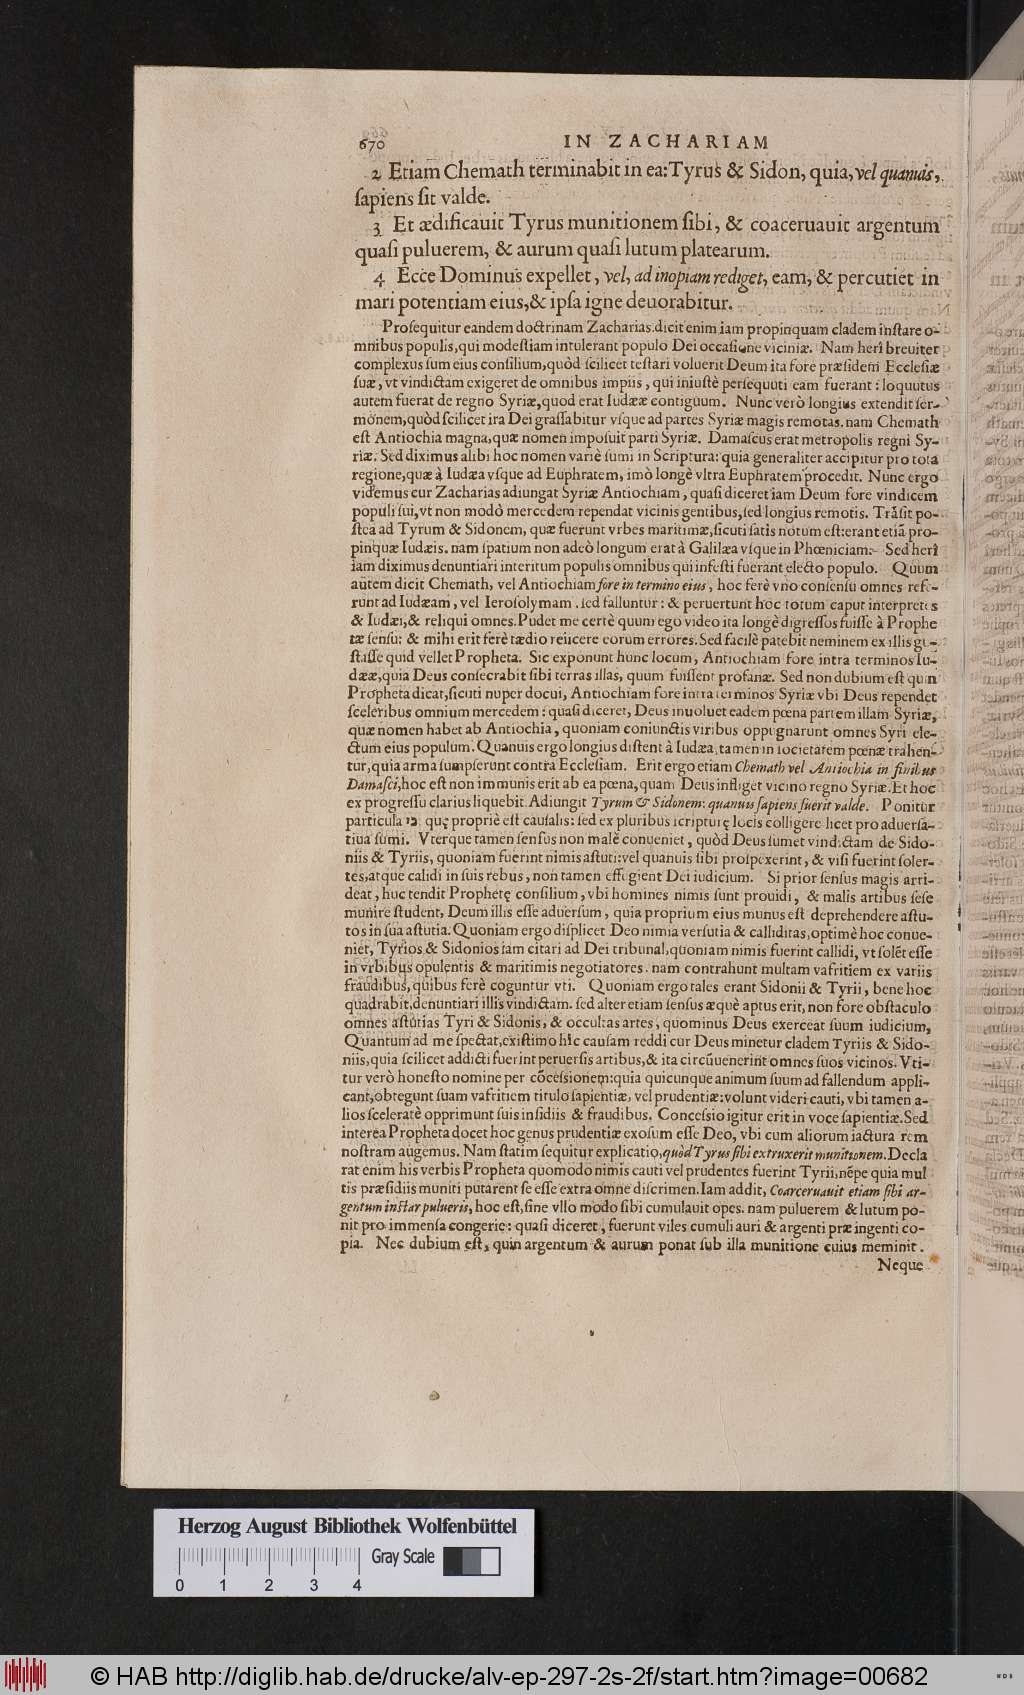 670 IN ZACHARIAM
2 Etiam Chemath terminabit in ea: Tyrus & Sidon, quia, vel quanuis,
ſapiens ſit valde.
3 Et ædificauit Tyrus munitionem ſibi, & coaceruauit argentum
quaſi puluerem, & aurum quaſi lutum platearum.
4 Ecce Dominus expellet, vel, ad inopiam rediget, eam, & percutiet in
mari potentiam eius, & ipſa igne deuorabitur.
Proſequitur eandem doctrinam Zacharias. dicit enim iam propinquam cladem inſtare o-
mnibus populis, qui modeſtiam intulerant populo Dei occaſione viciniæ. Nam herî breuiter
complexus ſum eius conſilium, quòd ſcilicet teſtari voluerit Deum ita fore præſidem Eccleſiæ
ſuæ, vt vindictam exigeret de omnibus impiis, qui iniuſtè perſequuti eam fuerant: loquutus
autem fuerat de regno Syriæ, quod erat Iudææ contiguum. Nunc verò longius extendit ſer-
monem, quòd ſcilicet ira Dei graſſabitur vſque ad partes Syriæ magis remotas. nam Chemath
eſt Antiochia magna, quæ nomen impoſuit parti Syriæ. Damaſcus erat metropolis regni Sy-
riæ. Sed diximus alibi hoc nomen variè ſumi in Scriptura: quia generaliter accipitur pro tota
regione, quæ à Iudæa vſque ad Euphratem, imò longè vltra Euphratem procedit. Nunc ergo
videmus cur Zacharias adiungat Syriæ Antiochiam, quaſi diceret iam Deum fore vindicem
populi ſui, vt non modò mercedem rependat vicinis gentibus, ſed longius remotis. Trãſit po-
ſtea ad Tyrum & Sidonem, quæ fuerunt vrbes maritimæ, ſicuti ſatis notum eſt: erant etiã pro-
pinquæ Iudæis. nam ſpatium non adeò longum erat à Galilæa vſque in Phœniciam: Sed herî
iam diximus denuntiari interitum populis omnibus qui infeſti fuerant electo populo. Quum
autem dicit Chemath, vel Antiochiam fore in termino eius, hoc ferè vno conſenſu omnes refe-
runt ad Iudæam, vel Ieroſolymam. ſed falluntur: & peruertunt hoc totum caput interpretes
& Iudæi, & reliqui omnes. Pudet me certè quum ego video ita longè digreſſos fuiſſe à Prophe
tæ ſenſu: & mihi erit ferè tædio reuicere eorum errores. Sed facilè patebit neminem ex illis gu-
ſtaſſe quid vellet Propheta. Sic exponunt hunc locum, Antiochiam fore intra terminos Iu-
dææ, quia Deus conſecrabit ſibi terras illas, quum fuiſſent profanæ. Sed non dubium eſt quin
Propheta dicat, ſicuti nuper docui, Antiochiam fore intra terminos Syriæ vbi Deus rependet
ſceleribus omnium mercedem: quaſi diceret, Deus inuoluet eadem pœna partem illam Syriæ,
quæ nomen habet ab Antiochia, quoniam coniunctis viribus oppugnarunt omnes Syri ele-
ctum eius populum. Quanuis ergo longius diſtent à Iudæa, tamen in ſocietatem pœnæ trahen-
tur, quia arma ſumpſerunt contra Eccleſiam. Erit ergo etiam Chemath vel Antiochia in finibus
Damaſci, hoc eſt non immunis erit ab ea pœna, quam Deus infliget vicino regno Syriæ. Et hoc
ex progreſſu clarius liquebit. Adiungit Tyrum & Sidonem: quanuis ſapiens fuerit valde. Ponitur
particula כי quę propriè eſt cauſalis: ſed ex pluribus ſcripturę locis colligere licet pro aduerſa-
tiua ſumi. Vterque tamen ſenſus non malè conueniet, quòd Deus ſumet vindictam de Sido-
niis & Tyriis, quoniam fuerint nimis aſtuti: vel quanuis ſibi proſpexerint, & viſi fuerint ſoler-
tes, atque calidi in ſuis rebus, non tamen effugient Dei iudicium. Si prior ſenſus magis arri-
deat, huc tendit Prophetę conſilium, vbi homines nimis ſunt prouidi, & malis artibus ſeſe
munire ſtudent, Deum illis eſſe aduerſum, quia proprium eius munus eſt deprehendere aſtu-
tos in ſua aſtutia. Quoniam ergo diſplicet Deo nimia verſutia & calliditas, optimè hoc conue-
niet, Tyrios & Sidonios iam citari ad Dei tribunal, quoniam nimis fuerint callidi, vt ſolẽt eſſe
in vrbibus opulentis & maritimis negotiatores. nam contrahunt multam vafritiem ex variis
fraudibus, quibus ferè coguntur vti. Quoniam ergo tales erant Sidonii & Tyrii, bene hoc
quadrabit, denuntiari illis vindictam. ſed alter etiam ſenſus æquè aptus erit, non fore obſtaculo
omnes aſtutias Tyri & Sidonis, & occultas artes, quominus Deus exerceat ſuum iudicium,
Quantum ad me ſpectat, exiſtimo hîc cauſam reddi cur Deus minetur cladem Tyriis & Sido-
niis, quia ſcilicet addicti fuerint peruerſis artibus, & ita circũuenerint omnes ſuos vicinos. Vti-
tur verò honeſto nomine per cõceſsionem: quia quicunque animum ſuum ad fallendum appli-
cant, obtegunt ſuam vafritiem titulo ſapientiæ, vel prudentiæ: volunt videri cauti, vbi tamen a-
lios ſceleratè opprimunt ſuis inſidiis & fraudibus. Conceſsio igitur erit in voce ſapientiæ. Sed
interea Propheta docet hoc genus prudentiæ exoſum eſſe Deo, vbi cum aliorum iactura rem
noſtram augemus. Nam ſtatim ſequitur explicatio, quòd Tyrus ſibi extruxerit munitionem. Decla
rat enim his verbis Propheta quomodo nimis cauti vel prudentes fuerint Tyrii, nẽpe quia mul
tis præſidiis muniti putarent ſe eſſe extra omne diſcrimen. Iam addit, Coarceruauit etiam ſibi ar-
gentum inſtar pulueris, hoc eſt, ſine vllo modo ſibi cumulauit opes. nam puluerem & lutum po-
nit pro immenſa congerie: quaſi diceret, fuerunt viles cumuli auri & argenti præ ingenti co-
pia. Nec dubium eſt, quin argentum & aurum ponat ſub illa munitione cuius meminit.
Neque
Herzog August Bibliothek Wolfenbüttel
Gray Scale
0 1 2 3 4
© HAB http://diglib.hab.de/drucke/alv-ep-297-2s-2f/start.htm?image=00682